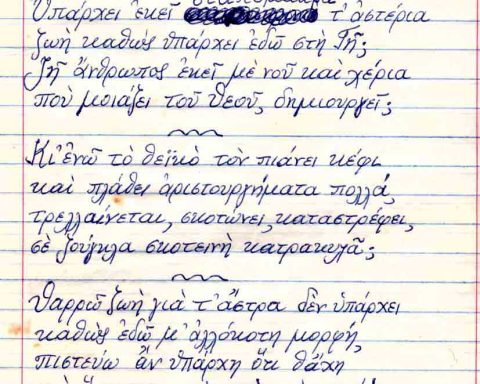 Ὑπάρχει ἐκεῖ τ' ἀστέρια
ζωὴ καθὼς ὑπάρχει ἐδῶ στὴ Γῆ;
Ζῆ ἄνθρωπος ἐκεῖ μὲ νοῦ καὶ χέρια
ποὺ μοιάζει τοῦ Θεοῦ, δημιουργεῖ;
Κι' ἐνῶ τὸ θεϊκὸ τὸν πιάνει κέφι
καὶ πλάθει ἀριστουργήματα πολλά,
τρελλαίνεται, σκοτώνει, καταστρέφει,
σὲ ζούγκλα σκοτεινὴ κατρακυλᾶ;
Θαρρῶ ζωὴ γιὰ τ' ἄστρα δὲν ὑπάρχει
καθὼς ἐδῶ μ' ἀλλόκοτη μορφή,
πιστεύω ἂν ὑπάρχη ὅτι θἄχη